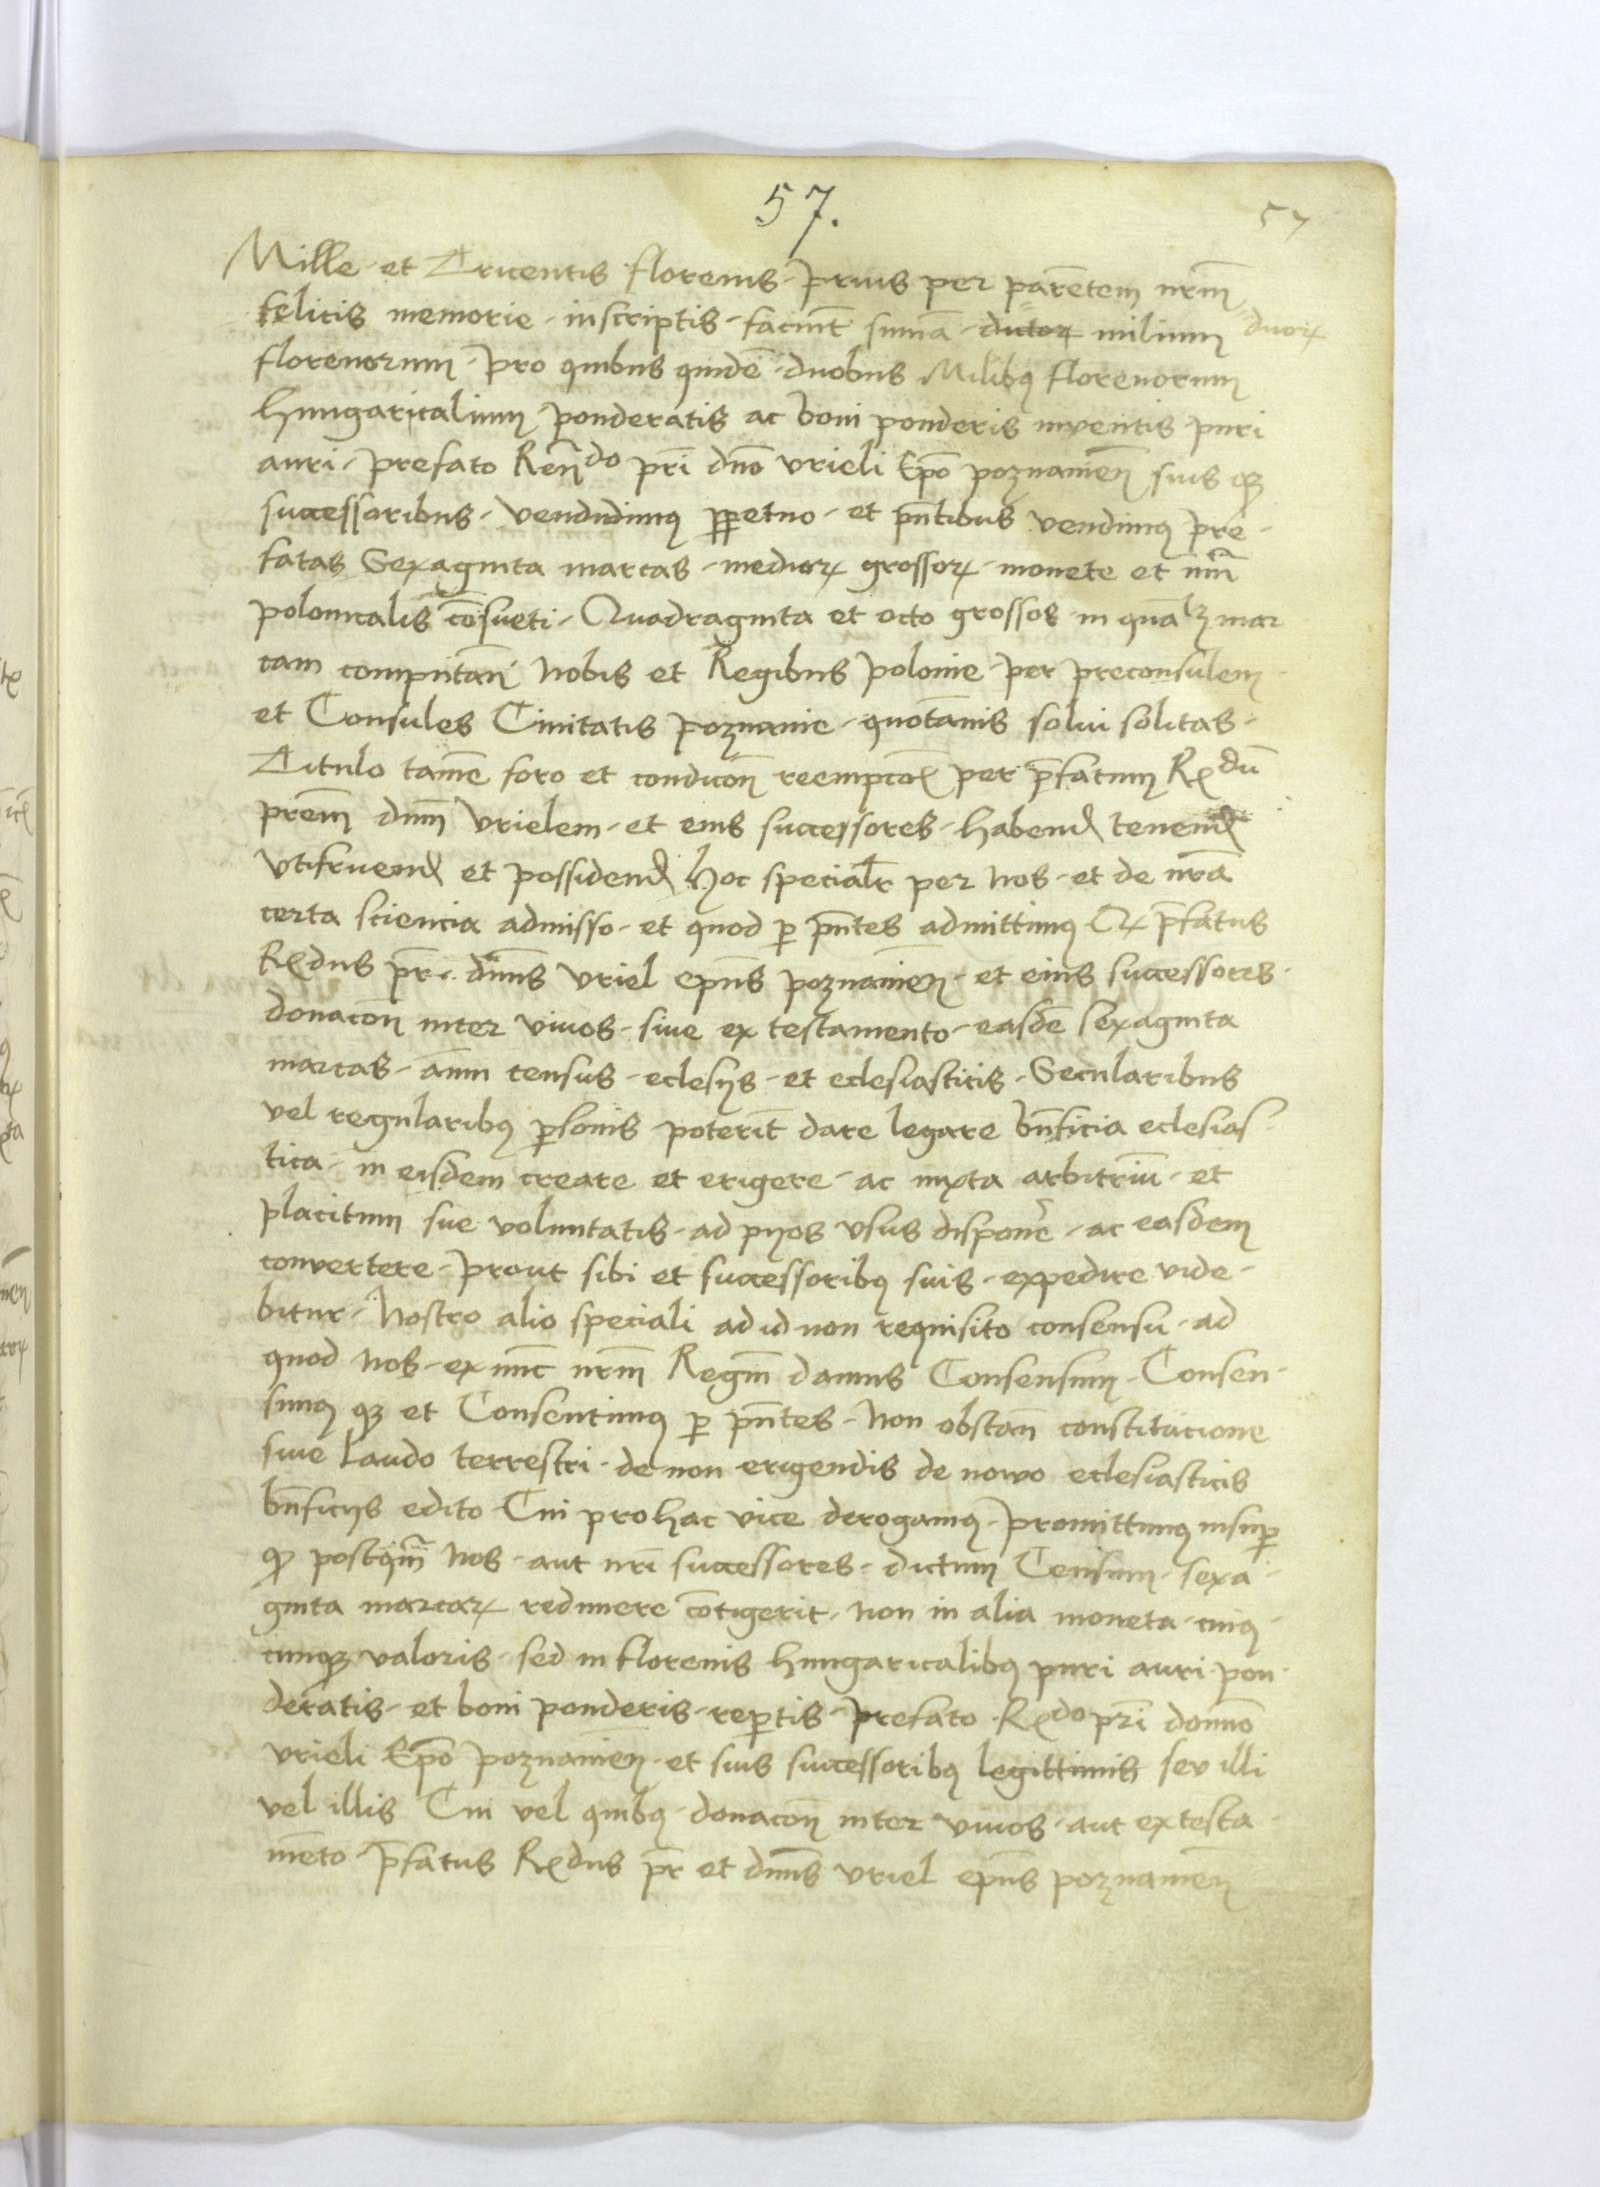 57.
57
Mille et Tricentis florenis prius per parētem nrm̄
felicis memorie inscriptis faciunt sum̄ā dictoꝝ milium duoꝝ
florenorum pro quibus quidē duobus Milibꝰ florenorum
hungaricalium ponderatis ac boni ponderis inventis puri
auri prefato Ren̄do pr̄i dn̄o vrieli Ep̄o poznanien̄ suis qꝫ
successoribus vendidimꝰ ꝑpetuo et pn̄tibus vendimꝰ pre
fatas Sexaginta marcas medioꝝ grossoꝝ monete et nūi
polonicalis cōsueti Quadraginta et octo grossos in qualꝫ mar
cam computan̄ nobis et Regibus polonie per preconsulem
et Consules Civitatis poznanie quotannis solui solitas
Titulo tamē foro et condicōn reempcōꝭ per p̄fatum Rꝭdū
prēm dnm̄ Vrielem et eius successores habendꝭ tenendꝭ
Vtifruendꝭ et possidendꝭ hoc specialr̄ per nos et de nrā
certa sciencia admisso et quod ꝑ pn̄tes admittimꝰ Qꝫ p̄fatus
Rꝭdus pr̄ dn̄us Vriel epūs poznanien̄ et eius successores
donacōn inter vivos sive ex testamento easdē sexaginta
marcas ān̄ui census eclesijs et eclesiasticis Secularibus
vel regularibꝰ ꝑsonis poterīt dare legare bn̄ficia eclesias
tica in eisdem creare et erigere ac iuxta arbitriū et
placitum sue voluntatis ad pijos vsus disponēr ac easdem
convertere prout sibi et successoribꝰ suis expedire vide
bitur Nostro alio speciali ad id non requisito consensu ad
quod nos ex nūc nrm̄ Regm̄ damus Consensum Consen
simꝰ qꝫ et Consentimꝰ ꝑ pn̄tes Non obstan̄ constitucione
sive laudo terrestri de non erigendis de nowo eclesiasticis
bn̄ficijs edito Cui pro hac vice derogamꝰ promittimꝰ insuꝑ
ꝙ postqm̄ nos aut nrī successores dictum Censum sexa
ginta marcaꝝ redimere cōtigerit non in alia moneta cuiꝰ
cunqꝫ valoris sed in florenis hungaricalibꝰ puri auri pon
deratis et boni ponderis reꝑtis prefato Rꝭdo pr̄i domno
vrieli Ep̄o poznanien̄ et suis successoribꝰ legittimis sev illi
vel illis Cui vel quibꝰ donacōn inter vivos aut ex testa
mēto p̄fatus Rꝭdus pr̄ et dn̄us vriel epūs poznanien̄